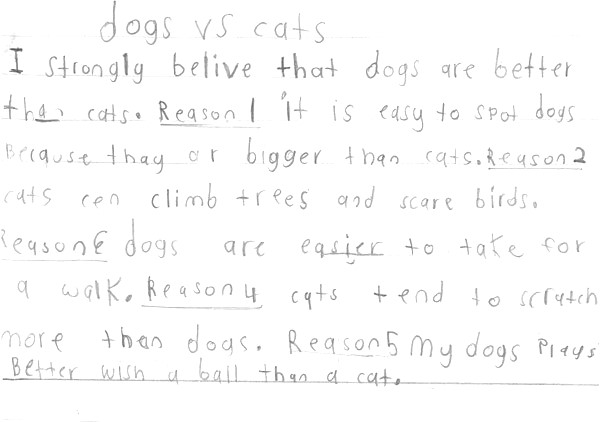 dogs vs cats
I strongly belive that dogs are better
than cats. Reason 1 it is easy to spot dogs
Because thay or bigger than cats. Reason 2
cats cen climb trees and scare birds.
Reason 6 dogs are easier to take for
a walk. Reason 4 cats tend to scratch
more than dogs. Reason 5 My dogs plays
Better wish a ball than a cat.